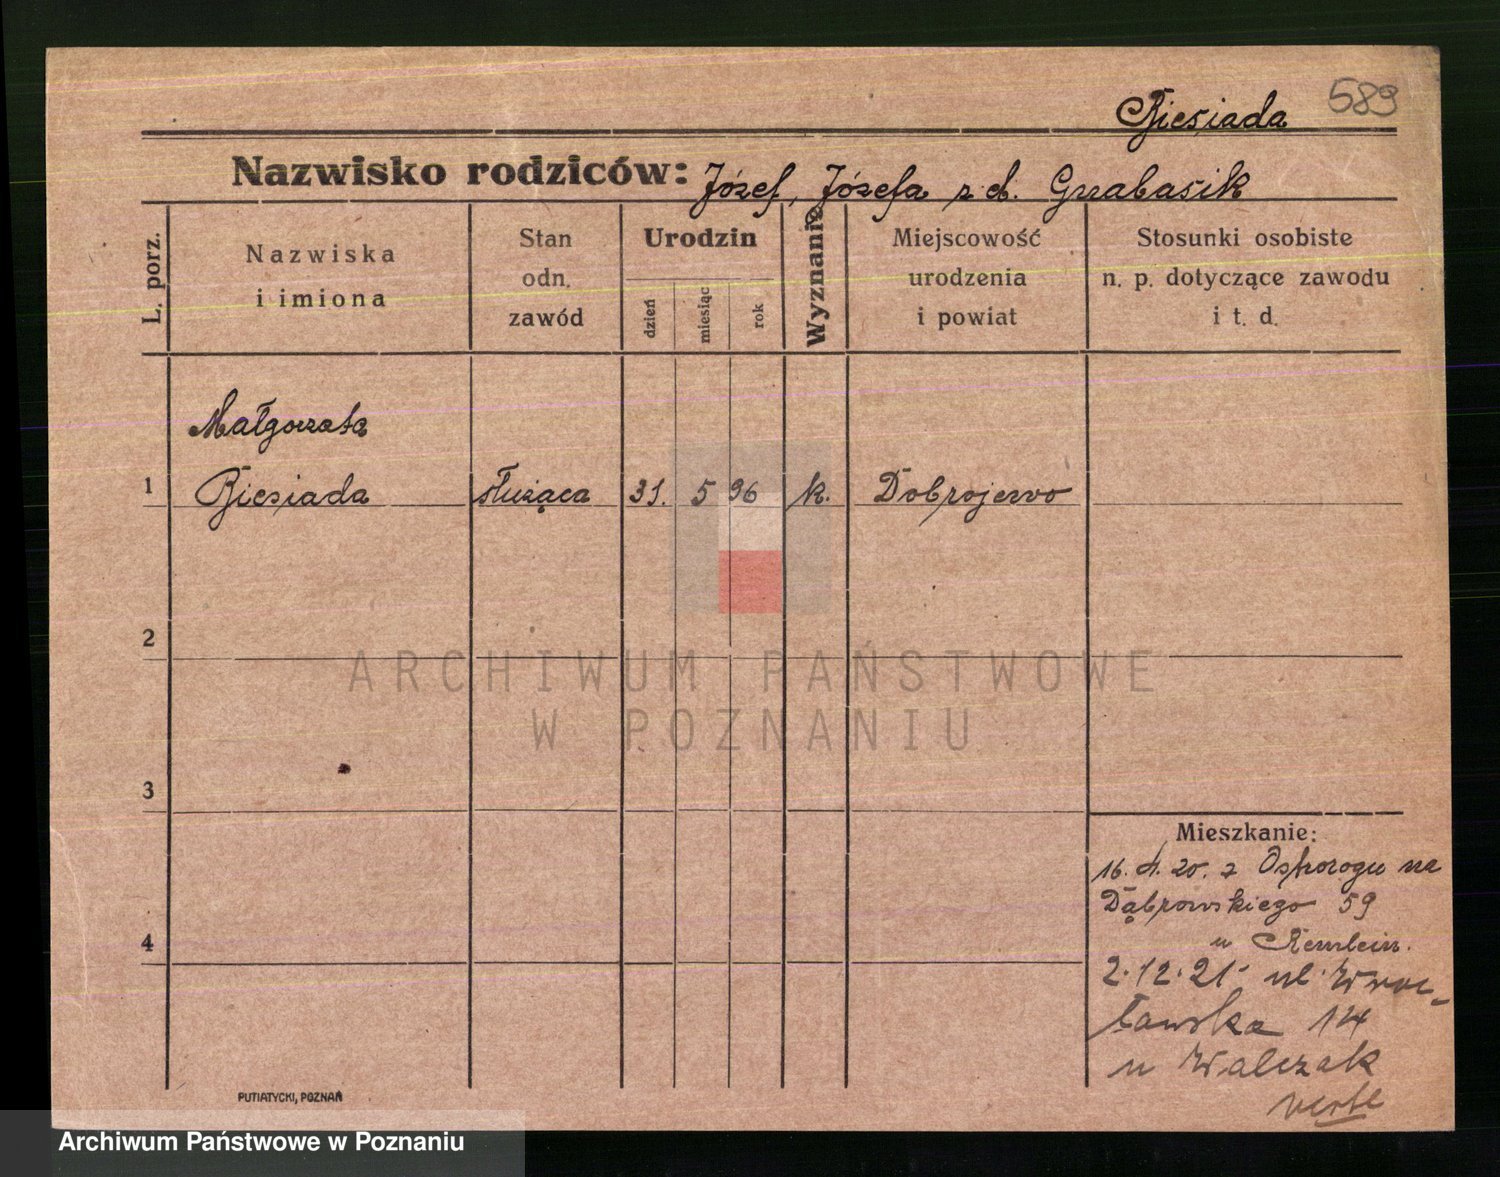 589
Biesiada
Nazwisko rodziców: Józef, Józefa z d. Grzabasik
L. porz.
Nazwiska
i imiona
Stan
odn.
zawód
Urodzin
dzień
miesiąc
rok
Wyznanie
Miejscowość
urodzenia
i powiat
Stosunki osobiste
n. p. dotyczące zawodu
i t. d.
Małgorzata
1 Biesiada służąca 31. 5 96 k. Dobrojewo
2
ARCHIWUM PAŃSTWOWE
W POZNANIU
3
Mieszkanie:
16. 4. 20. z Ostrorogu na
Dąbrowskiego 59
4
u
2.12.21 ul. Wroc-
ławska 14
u Walczak
verte
PUTIATYCKI, POZNAŃ
Archiwum Państwowe w Poznaniu